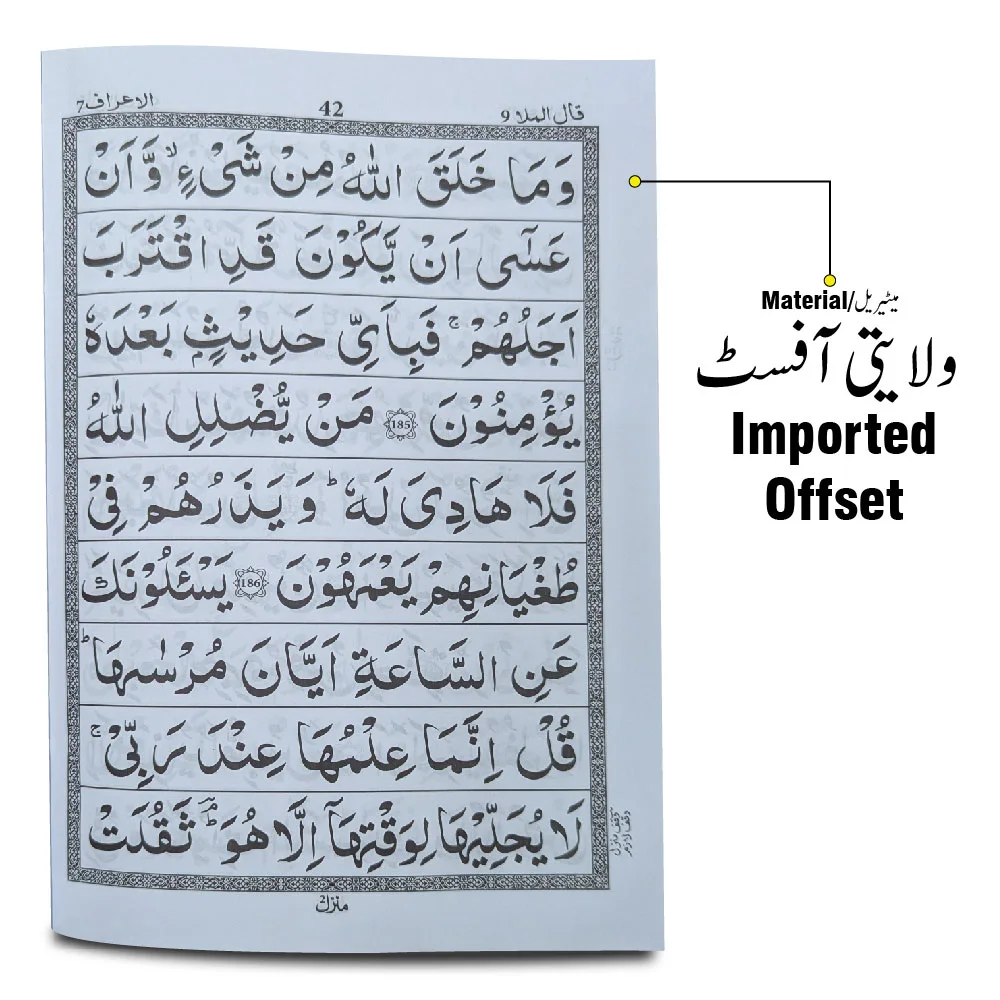 الاعراف7
42
قال الملا 9
وَمَا خَلَقَ اللّٰهُ مِنْ شَیْءٍ ۙ وَّ اَنْ
عَسٰۤی اَنْ یَّکُوْنَ قَدِ اقْتَرَبَ
اَجَلُهُمْ ۚ فَبِاَیِّ حَدِیْثٍۭ بَعْدَهٗ
یُؤْمِنُوْنَ 185 مَنْ یُّضْلِلِ اللّٰهُ
فَلَا هَادِیَ لَهٗ ؕ وَ یَذَرُهُمْ فِیْ
طُغْیَانِهِمْ یَعْمَهُوْنَ 186 یَسْئَلُوْنَكَ
عَنِ السَّاعَةِ اَیَّانَ مُرْسٰىهَا ؕ
قُلْ اِنَّمَا عِلْمُهَا عِنْدَ رَبِّیْ ۚ
لَا یُجَلِّیْهَا لِوَقْتِهَاۤ اِلَّا هُوَ ؔۘؕ ثَقُلَتْ
منزل 2
Material/میٹیریل
ولایتی آفسٹ
Imported
Offset